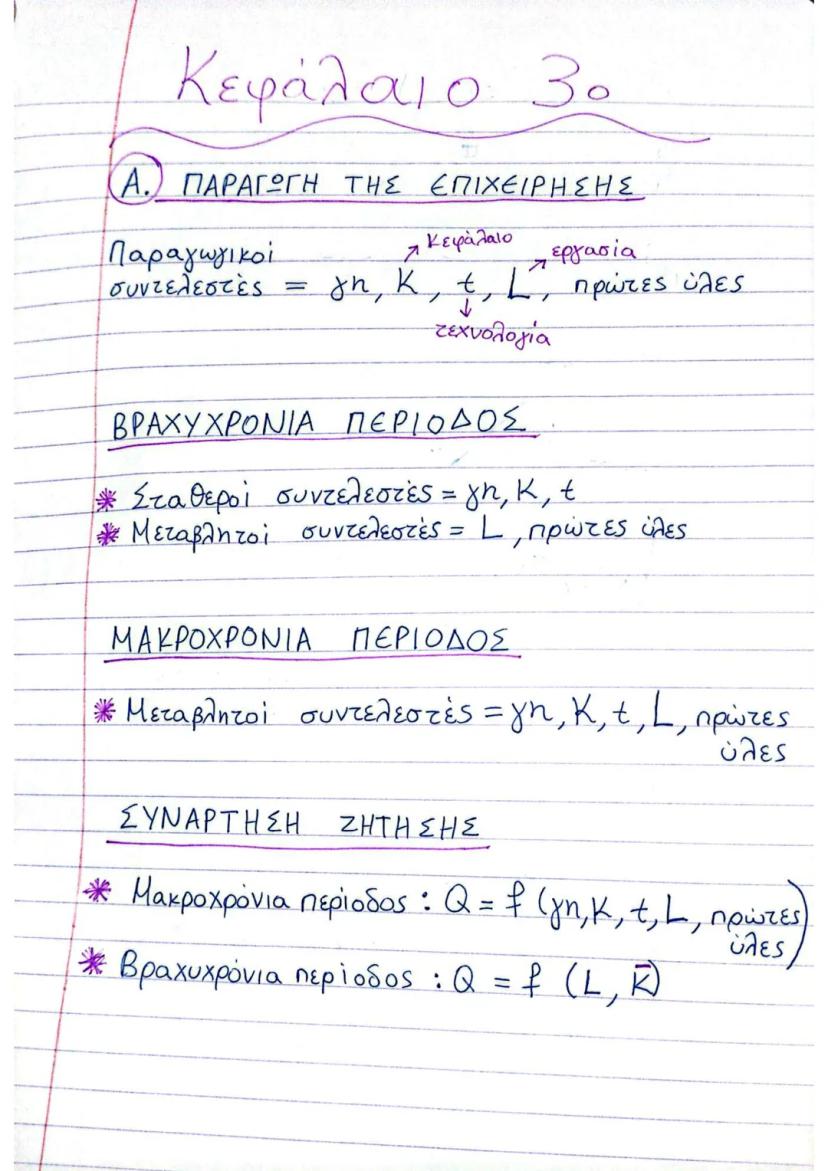 Κεφάλαιο 3ο
Α. ΠΑΡΑΓΩΓΗ ΤΗΣ ΕΠΙΧΕΙΡΗΣΗΣ
Παραγωγικοί
κεφάλαιο
εργασία
συντελεστές = γη, Κ, t, L, πρώτες ύλες
τεχνολογία
ΒΡΑΧΥΧΡΟΝΙΑ ΠΕΡΙΟΔΟΣ
* Σταθεροί συντελεστές = γη, Κ, t
* Μεταβλητοί συντελεστές = L, πρώτες ύλες
ΜΑΚΡΟΧΡΟΝΙΑ ΠΕΡΙΟΔΟΣ
* Μεταβλητοί συντελεστές = γη, Κ, t, L, πρώτες
ύλες
ΣΥΝΑΡΤΗΣΗ ΖΗΤΗΣΗΣ
* Μακροχρόνια περίοδος : Q = f (γη, Κ, t, L, πρώτες
ύλες)
* Βραχυχρόνια περίοδος : Q = f (L, K̄)